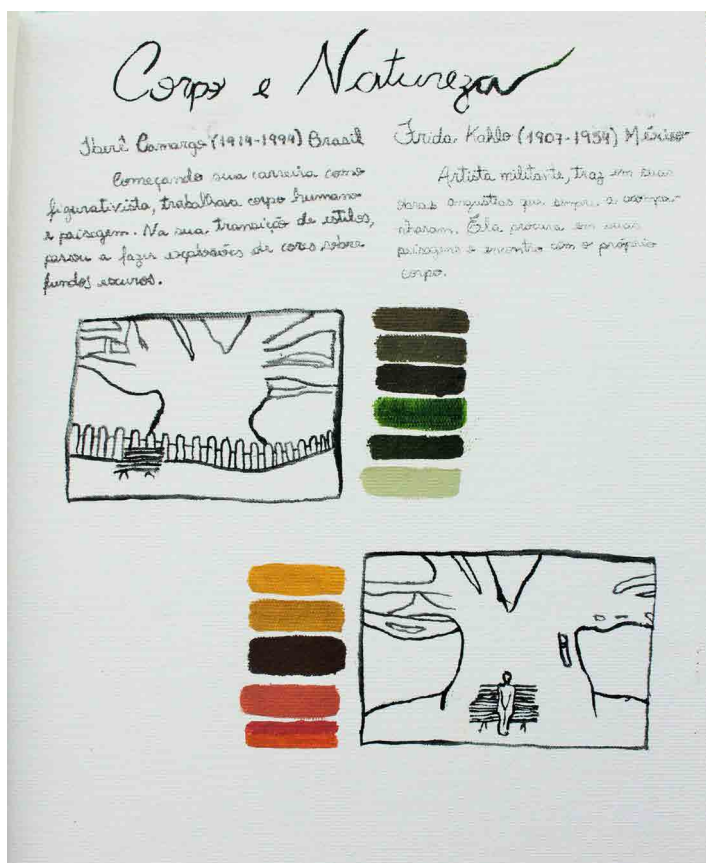 Corpo e Natureza
Iberê Camargo (1914-1994) Brasil
Começando sua carreira como
figurativista, trabalhava corpo humano
e paisagem. Na sua transição de estilos,
passou a fazer explosões de cores sobre
fundos escuros.
Frida Kahlo (1907-1954) México
Artista militante, traz em suas
obras angústias que sempre a acompa-
nharam. Ela procura em suas
paisagens o encontro com o próprio
corpo.